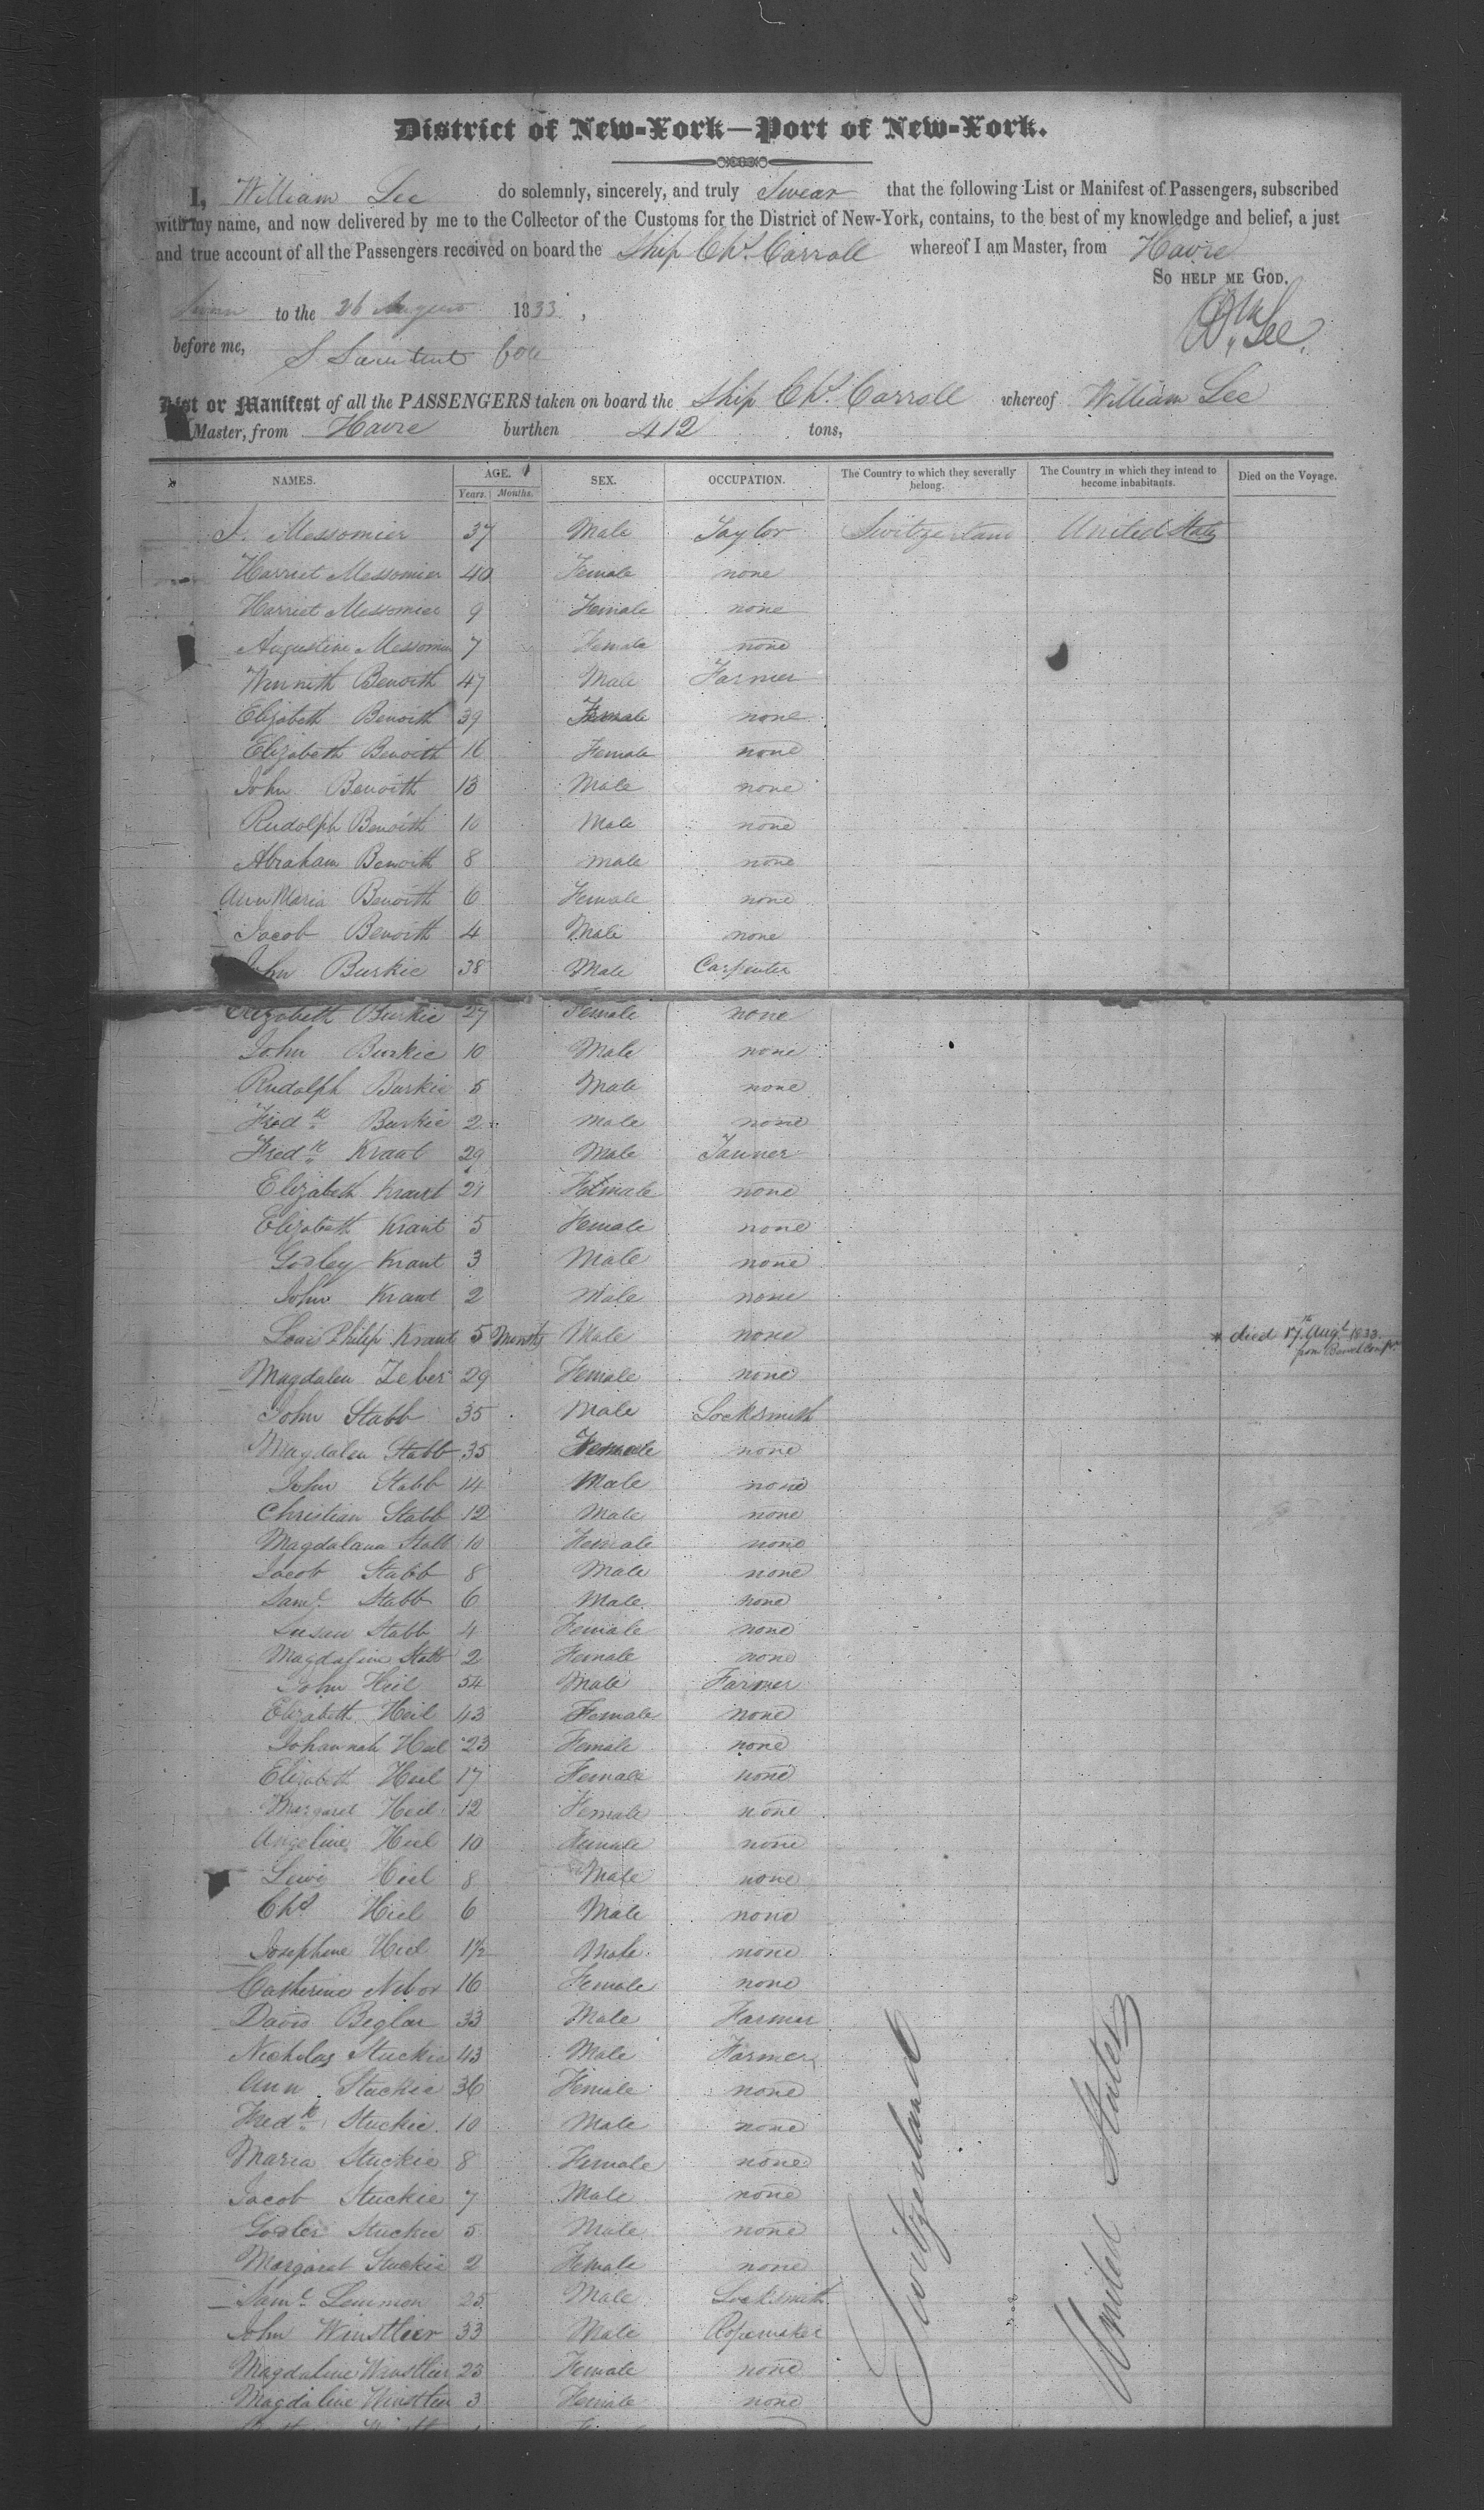 District of New-York—Port of New-York.
I, William Lee do solemnly, sincerely, and truly Swear that the following List or Manifest of Passengers, subscribed
with my name, and now delivered by me to the Collector of the Customs for the District of New-York, contains, to the best of my knowledge and belief, a just
and true account of all the Passengers received on board the Ship Chs. Carroll whereof I am Master, from Havre
So help me God.
to the 26 August 1833,
Wm Lee.
before me,
List or Manifest of all the PASSENGERS taken on board the Ship Chs. Carroll whereof William Lee
Master, from Havre burthen 412 tons,
NAMES. AGE. Years. Months. SEX. OCCUPATION. The Country to which they severally belong. The Country in which they intend to become inhabitants. Died on the Voyage.
J. Messomier 37 Male Taylor Switzerland United States
Harriet Messomier 40 Female none
Harriet Messomier 9 Female none
Augustine Messomier 7 Female none
Benoith 47 Male Farmer
Elizabeth Benoith 39 Female none
Elizabeth Benoith 16 Female none
John Benoith 13 Male none
Rudolph Benoith 10 Male none
Abraham Benoith 8 male none
Ann Maria Benoith 6 Female none
Jacob Benoith 4 Male none
John Burkie 38 Male Carpenter
Elizabeth Burkie 27 Female none
John Burkie 10 Male none
Rudolph Burkie 5 Male none
Fredk Burkie 2 male none
Fredk Kraut 29 Male Tanner
Elizabeth Kraut 21 Female none
Elizabeth Kraut 5 Female none
Gosley Kraut 3 Male none
John Kraut 2 Male none
Louis Philip Kraut 5 Months Male none died 17th Augt 1833
Magdalen Zeber 29 Female none
John Stabb 35 Male Locksmith
Magdalen Stabb 35 Female none
John Stabb 14 Male none
Christian Stabb 12 Male none
Magdalana Stabb 10 Female none
Jacob Stabb 8 Male none
Saml Stabb 6 Male none
Susan Stabb 4 Female none
Magdaline Stabb 2 Female none
John Heil 54 Male Farmer
Elizabeth Heil 43 Female none
Johannah Heil 23 Female none
Elizabeth Heil 17 Female none
Margaret Heil 12 Female none
Angeline Heil 10 Female none
Lewis Heil 8 Male none
Chs Heil 6 Male none
Josephine Heil 1½ Male none
Catherine Nebor 16 Female none
David Beglar 33 Male Farmer
Nicholas Stuckie 43 Male Farmer
Ann Stuckie 36 Female none
Fredk Stuckie 10 Male none
Maria Stuckie 8 Female none
Jacob Stuckie 7 Male none
Gosler Stuckie 5 Male none
Margaret Stuckie 2 Female none
Saml Lemmon 25 Male Locksmith
John Winstlier 33 Male Ropemaker
Magdaline Winstlier 23 Female none
Magdaline Winstlier 3 Female none
Switzerland
United States